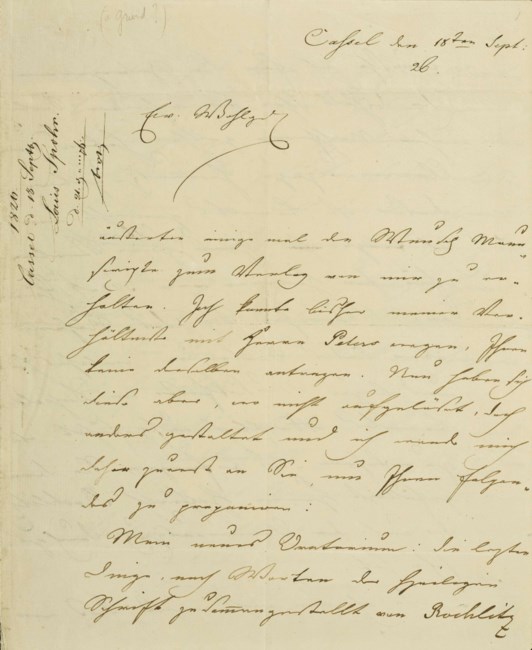 Cassel den 18ten Sept.
26.
1826
Cassel d 18 Septb
Louis Spohr.
Ew. Wohlgeb
äußerten einige mal den Wunsch Manu-
scripte zum Verlag von mir zu er-
halten. Ich konnte bisher meiner Ver-
hältnisse mit Herrn Peters wegen, Ihnen
keine derselben antragen. Nun haben sich
diese aber, wo nicht aufgelöst, doch
anders gestaltet und ich wende mich
daher zuerst an Sie, um Ihnen folgen-
des zu proponiren:
Mein neues Oratorium: die letzten
Dinge, nach Worten der heiligen
Schrift zusammengestellt von Rochlitz